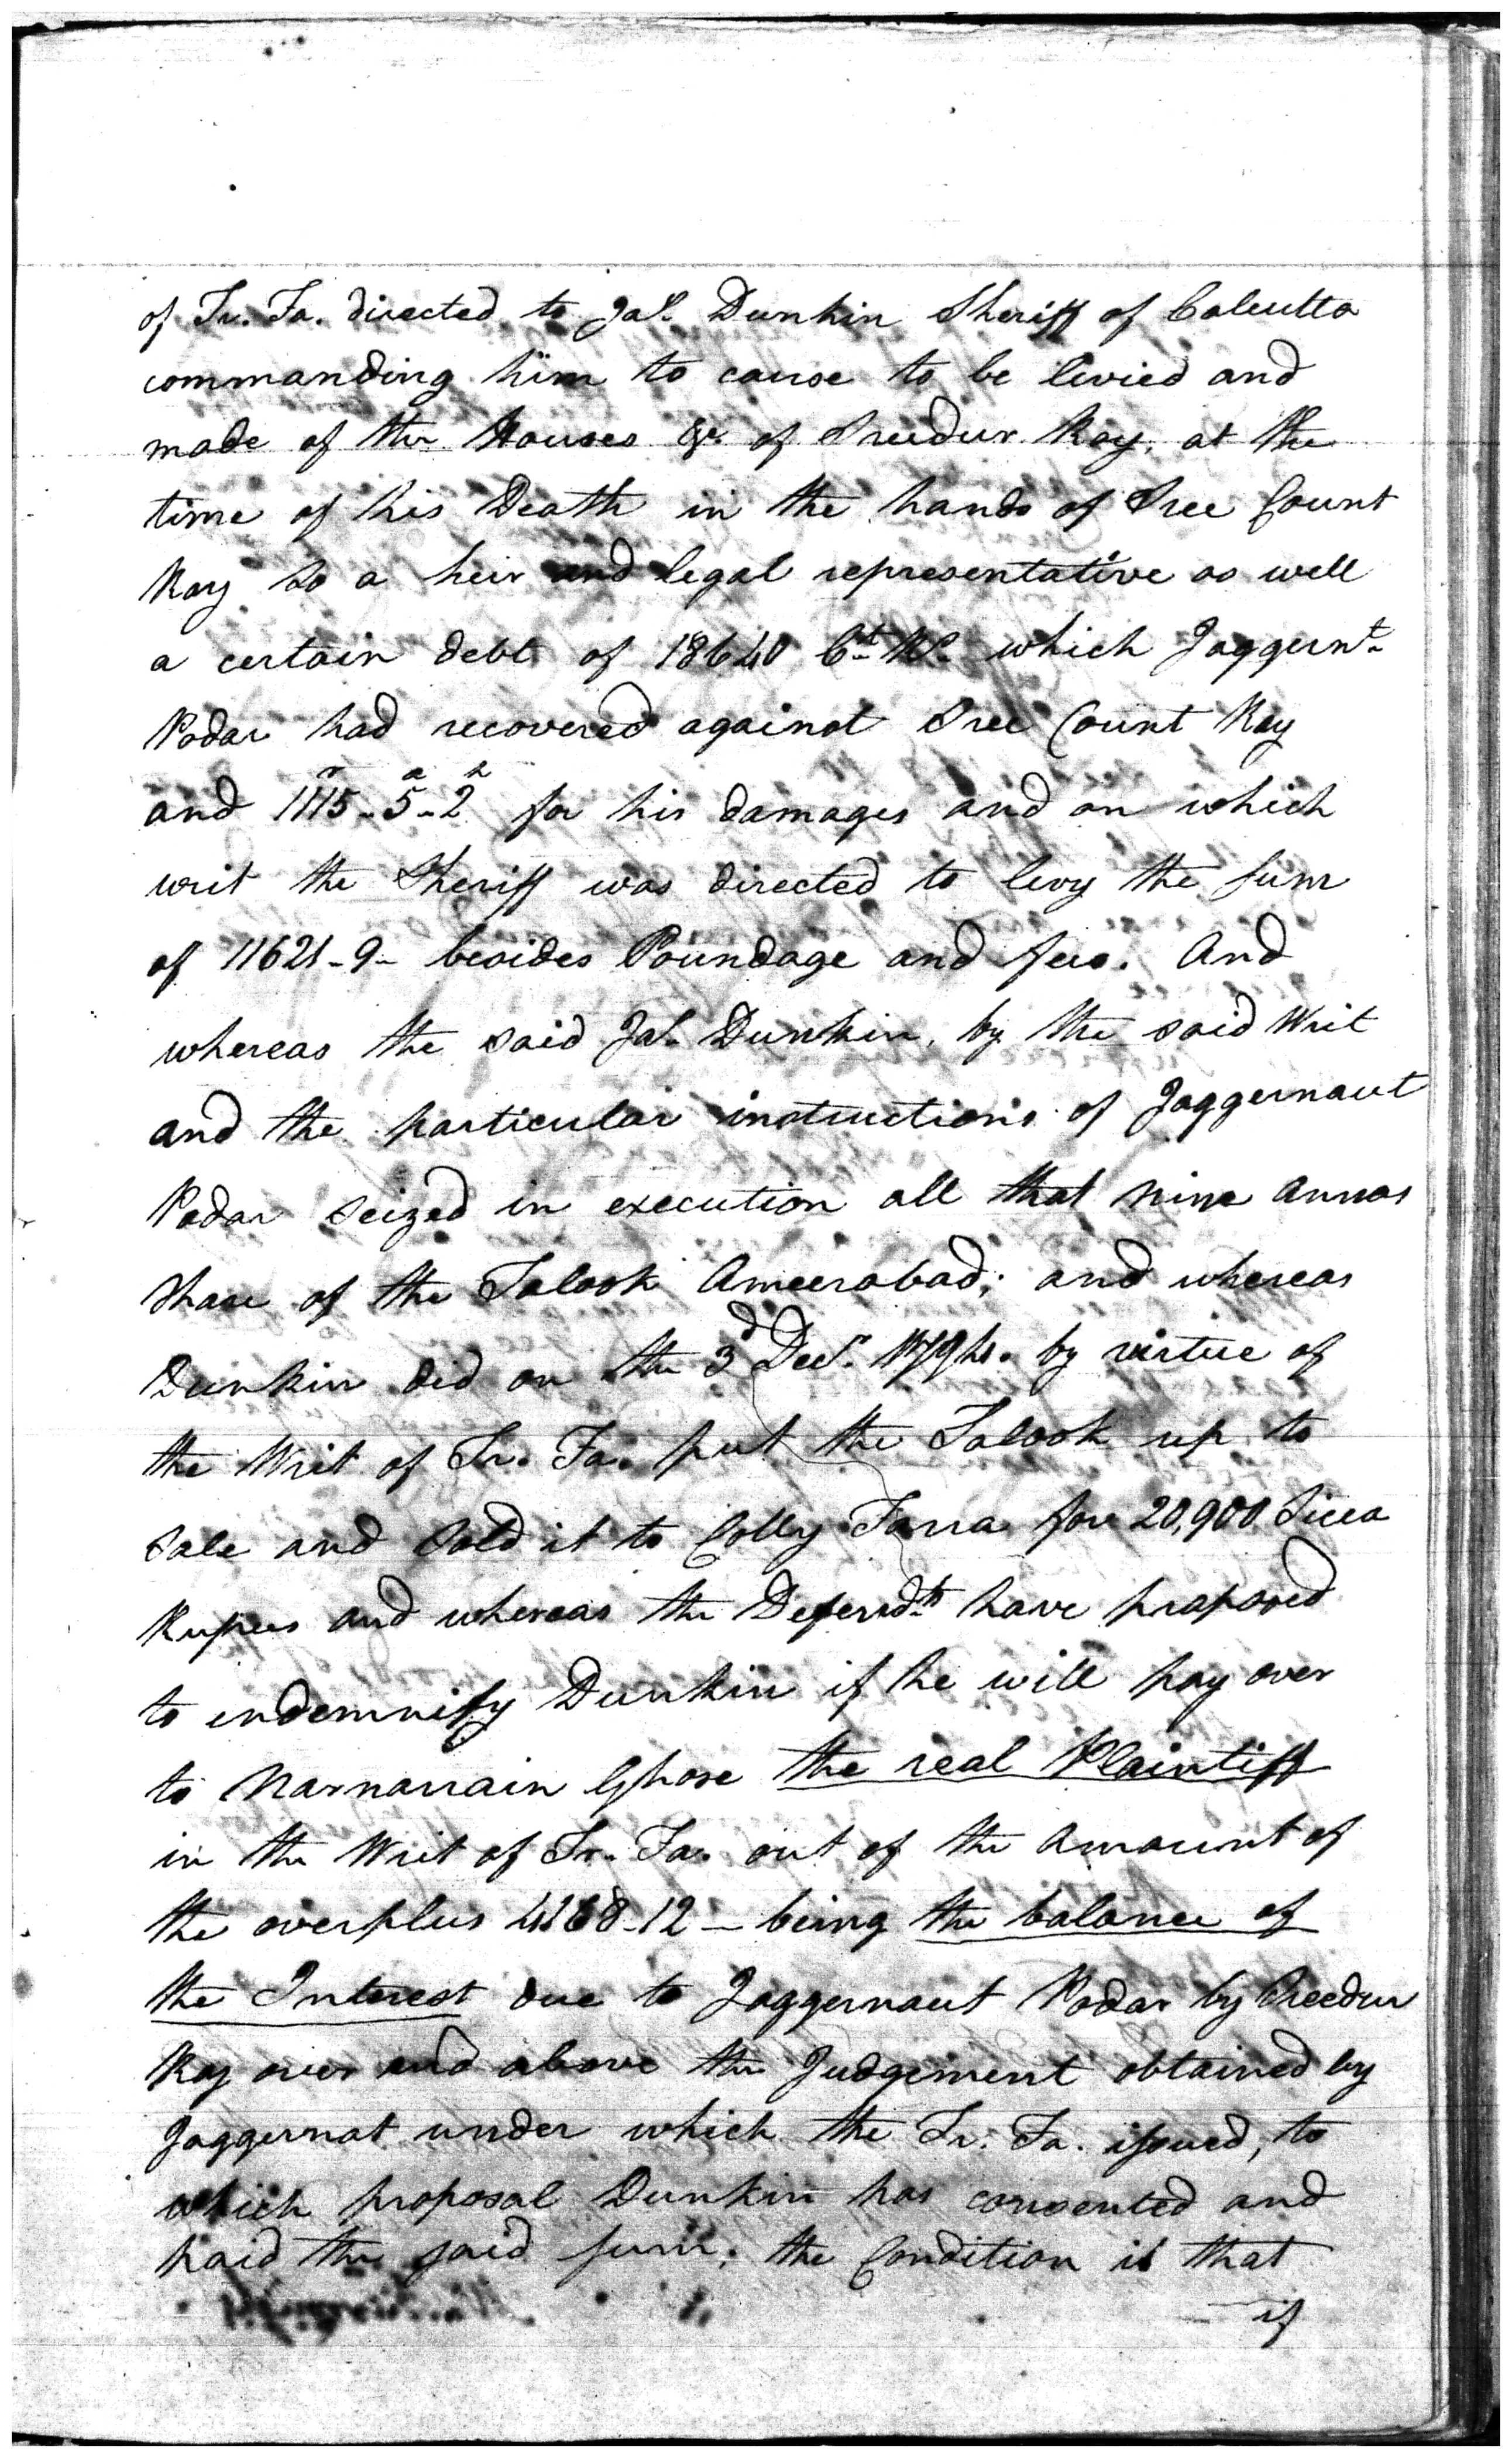 of Fi. Fa. directed to Jaˢ. Dunkin Sheriff of Calcutta
commanding him to cause to be levied and
made of the Houses &c. of Sreedur Roy, at the
time of his Death in the hands of Sree Count
Roy as a heir and legal representative as well
a certain debt of 18640 Cᵗ. Rˢ. which Jaggernᵗ.
Podar had recovered against Sree Count Roy
and 1115ʳ-5ᵃ-2ᵖ for his damages and on which
writ the Sheriff was directed to levy the sum
of 11621-9- besides Poundage and fees. And
whereas the said Jaˢ. Dunkin, by the said Writ
and the particular instructions of Jaggernaut
Podar seized in execution all that nine annas
share of the Talook Ameerabad; and whereas
Dunkin did on the 3ᵈ Decʳ. 1794. by virtue of
the Writ of Fi. Fa. put the Talook up to
sale and sold it to Colly Farra for 20,900 Sicca
Rupees and whereas the Defendᵗˢ have proposed
to indemnify Dunkin if he will pay over
to Narnarrain Ghose the real Plaintiff
in the Writ of Fi. Fa. out of the amount of
the overplus 4168-12 - being the balance of
the Interest due to Jaggernaut Podar by Sreedur
Roy over and above the Judgement obtained by
Jaggernat under which the Fi. Fa. issued, to
which proposal Dunkin has consented and
paid the said sum; the Condition is that
if